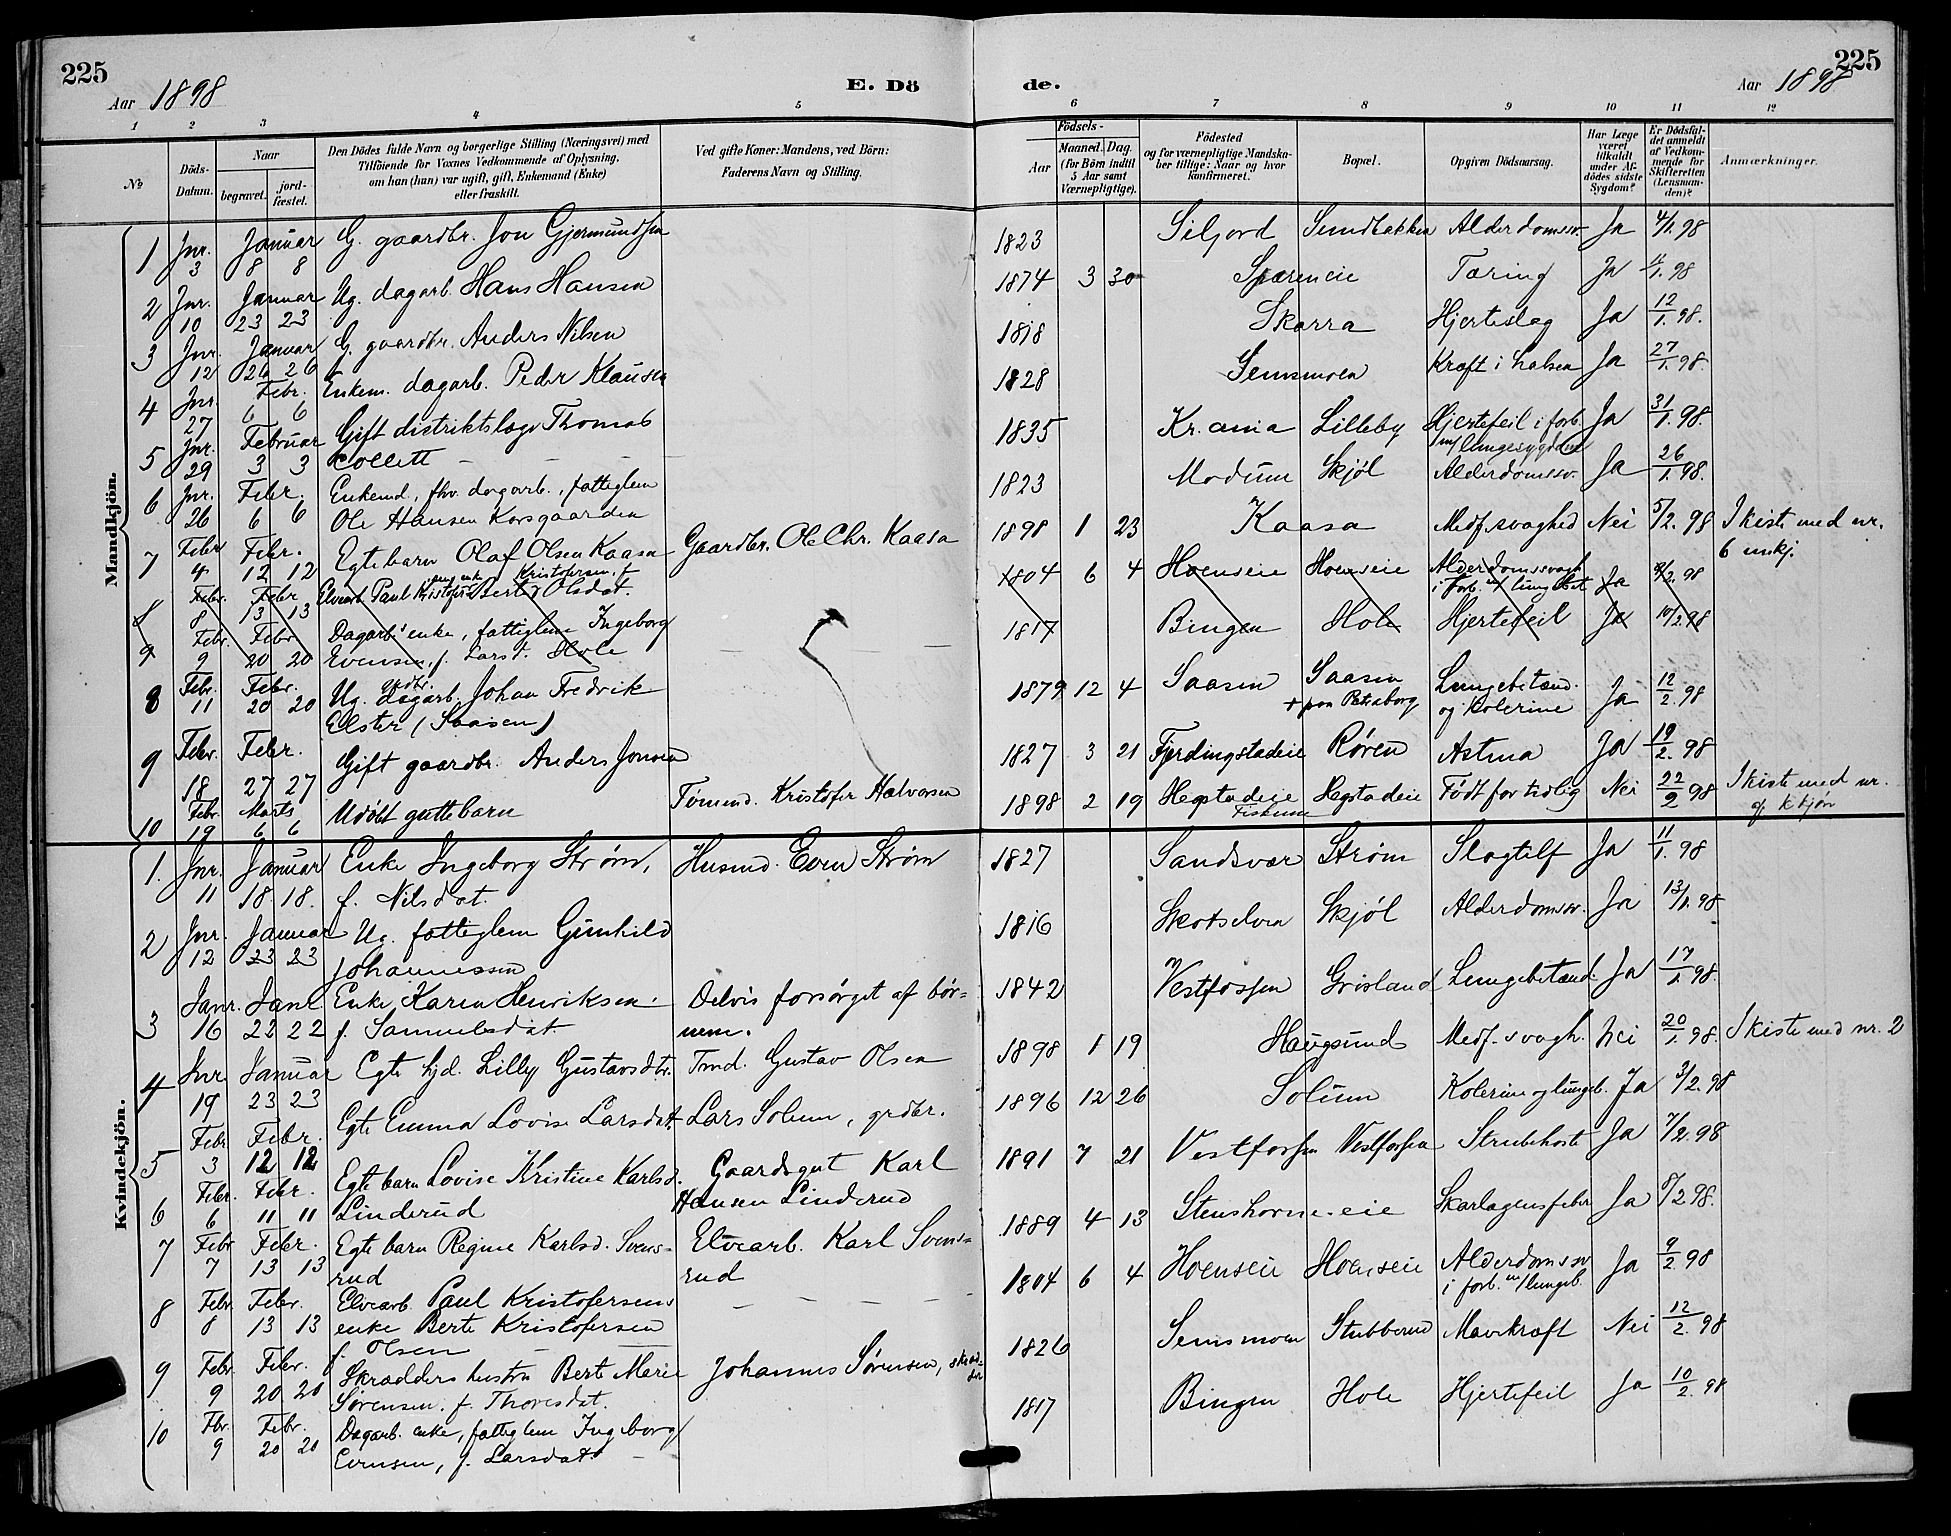 225
Aar 1898
E. Dö
de.
Aar 1898
225
1 2 3 4 5 6 7 8 9 10 11 12
No
Döds-Datum.
Naar
begravet.
jord-fæstet.
Den Dödes fulde Navn og borgerlige Stilling (Næringsvei) med
Tilföiende for Voxnes Vedkommende af Oplysning,
om han (hun) var ugift, gift, Enkemand (Enke)
eller fraskilt.
Ved gifte Koner: Mandens, ved Börn:
Faderens Navn og Stilling.
Födsels-
Aar
Maaned. Dag.
(for Börn indtil
5 Aar samt
Værnepligtige).
Födested
og for værnepligtige Mandska-
ber tillige: Naar og hvor
konfirmeret.
Bopæl.
Opgiven Dödsaarsag.
Har Læge
været
tilkaldt
under Af-
dödes sidste
Sygdom?
Er Dödsfal-
det anmeldt
af Vedkom-
mende for
Skifteretten
(Lensman-
den)?
Anmærkninger.
Mandkjön.
1 Jnr. 3 Januar 8 8 G. gaardbr. Jon Gjermundsen 1823 Siljord Sundbakken Alderdomssv. Ja 4/1 98
2 Jnr. 10 Januar 23 23 Ug. dagarb. Hans Hansen 1874 3 30 Spæreneie Tæring Ja 11/1. 98
3 Jnr. 12 Januar 26 26 G. gaardbr. Anders Nilsen 1818 Skarra Hjerteslag Ja 12/1. 98.
4 Jnr. 27 Febr. 6 6 Enkem. dagarb. Peder Klausen 1828 Semsmoen Kræft i halsen Ja 27/1. 98.
5 Jnr. 29 Februar 3 3 Gift distriktslæge Thomas
Collett 1835 Kr.ania Lilleby Hjertefeil i forb.
m/ lungesygdom Ja 31/1. 98.
6 Jnr. 26 Febr. 6 6 Enkemd., fhv. dagarb., fattiglem
Ole Hansen Korsgaarden 1823 Modum Skjøl Alderdomssv. Ja 26/1. 98.
7 Febr 4 Febr. 12 12 Egte barn Olaf Olsen Kaasa Gaardbr. Ole Chr. Kaasa 1898 1 23 Kaasa Medf. svaghed Nei 5/2. 98 I kiste med nr.
6 mskj.
8 Febr. 8 Febr 13 13 Elvearb. Paul Kristofersens enke Berte Kristofersen, f.
Olsdat. 1804 6 4 Hoenseie Hoenseie Alderdomssvagh
i forb. m/ lungebet Ja 9/2. 98
9 Febr. 9 Febr 20 20 Dagarbs enke, fattiglem Ingeborg
Evensen, f. Larsd. Hole 1817 Bingen Hole Hjertefeil Ja 10/2. 98
8 Febr. 11 Febr. 20 20 Ug. Dagarb. Johan Fredrik
Elster (Saasen) 1879 12 4 Saasen Saasen
+ paa Petraborg Lungebetænd.
og Kolerine Ja 12/2. 98
9 Febr. 18 Febr. 27 27 Gift gaardbr. Anders Jonsen 1827 3 21 Fjerdingstadeie Røren Astma Ja 19/2. 98
10 Febr. 19 Marts 6 6 Udøbt guttebarn Tømmd. Kristofer Halvorsen 1898 2 19 Hegstadeie
Fiskum Hegstadeie Født for tidlig Nei 22/2 98 I kiste med nr.
af kkjøn
Kvindekjön.
1. Jnr. 11 Januar 18 18. Enke Ingeborg Strøm,
f. Nilsdat. Husmd. Even Strøm 1827 Sandsvær Strøm Slagtilf Ja 11/1. 98
2 Jnr. 12 Januar 23 23 Ug. fattiglem Gunhild
Johannessen 1816 Skotselven Skjøl Alderdomssv. Ja 13/1. 98
3 Janr. 16 Janr 22 22 Enke Karen Henriksen
f. Samuelsdat. Delvis forsørget af bør-
nene. 1842 Vestfossen Grisland Lungebetænd. Ja 17/1. 98.
4 Jnr 19 Januar 23 23 Egte hjd. Lilly Gustavsdtr. Tmd. Gustav Olsen 1898 1 19 Haugsund Medf. svagh. Nei 20/1. 98. I kiste med nr. 2
5 Febr. 3 Febr. 12 12 Egte Emma Lovise Larsdat. Lars Solum, grdbr. 1896 12 26 Solum Kolerine og lungeb. Ja 3/2. 98
6 Febr. 6 Febr. 11 11 Egte barn Lovise Kristine Karlsd.
Linderud Gaardsgut Karl
Hansen Linderud 1891 7 21 Vestfossen Vestfossen Strubehoste Ja 7/2. 98
7 Febr 7 Febr. 13 13 Egte barn Regine Karlsd. Svens-
rud Elvearb. Karl Svens-
rud 1889 4 13 Stenshorne-eie Skarlagensfeber Ja 8/2 98.
8 Febr. 8 Febr. 13 13 Elvearb. Paul Kristofersens
enke Berte Kristofersen
f. Olsen 1804 6 4 Hoenseie Hoenseie Alderdomssv
i forb. m/ lungeb. Ja 9/2 98
9 Febr. 9 Febr. 20 20 Skrædders hustru Berte Marie
Sørensen, f. Thoresdat. Johannes Sørensen, skræd-
der 1826 Semsmoen Stubberud Mavekræft Nei 12/2. 98
10 Fbr. 9 Febr. 20 20 Dagarb. enke, fattiglem Ingeborg
Evensen, f. Larsdat. 1817 Bingen Hole Hjertefeil Ja 10/2. 98